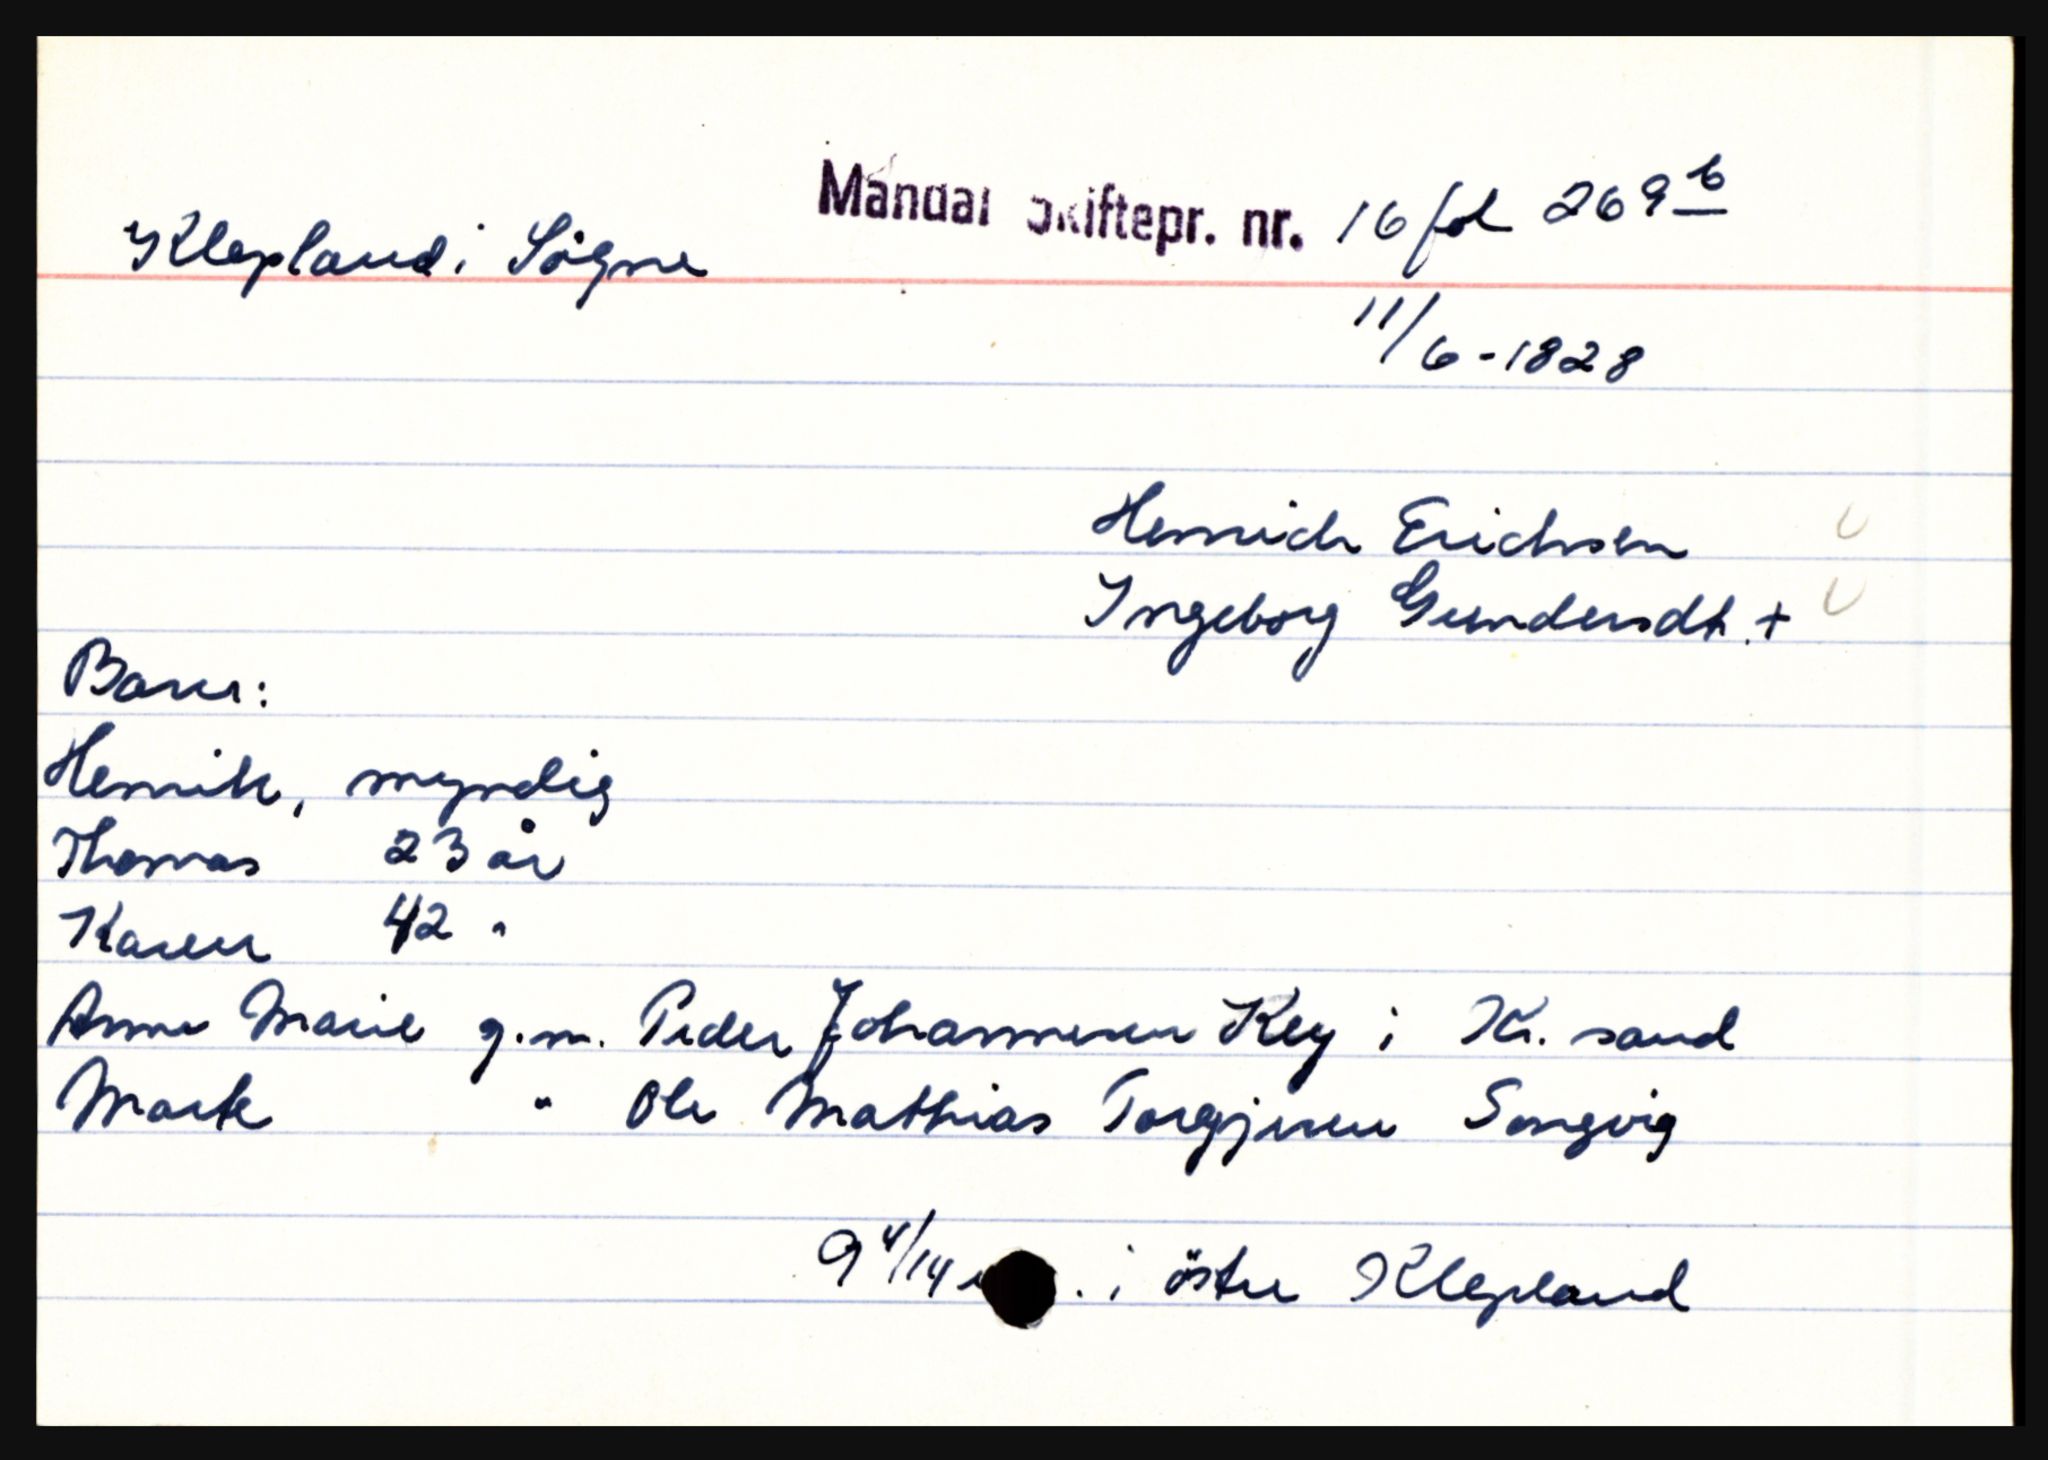 Klepland i Søgne
Mandal Skiftepr. nr. 16 fol 269 b
11/6-1828
Henrich Erichsen
Ingeborg Gundersdt. +
Barn:
Henrik, myndig
Thomas 23 år
Karen 42 "
Anne Marie g.m. Peder Johannesen Key i Kr. sand
Marte " Ole Mathias Torgjusen Songvig
9 4/14 . i östre Klepland